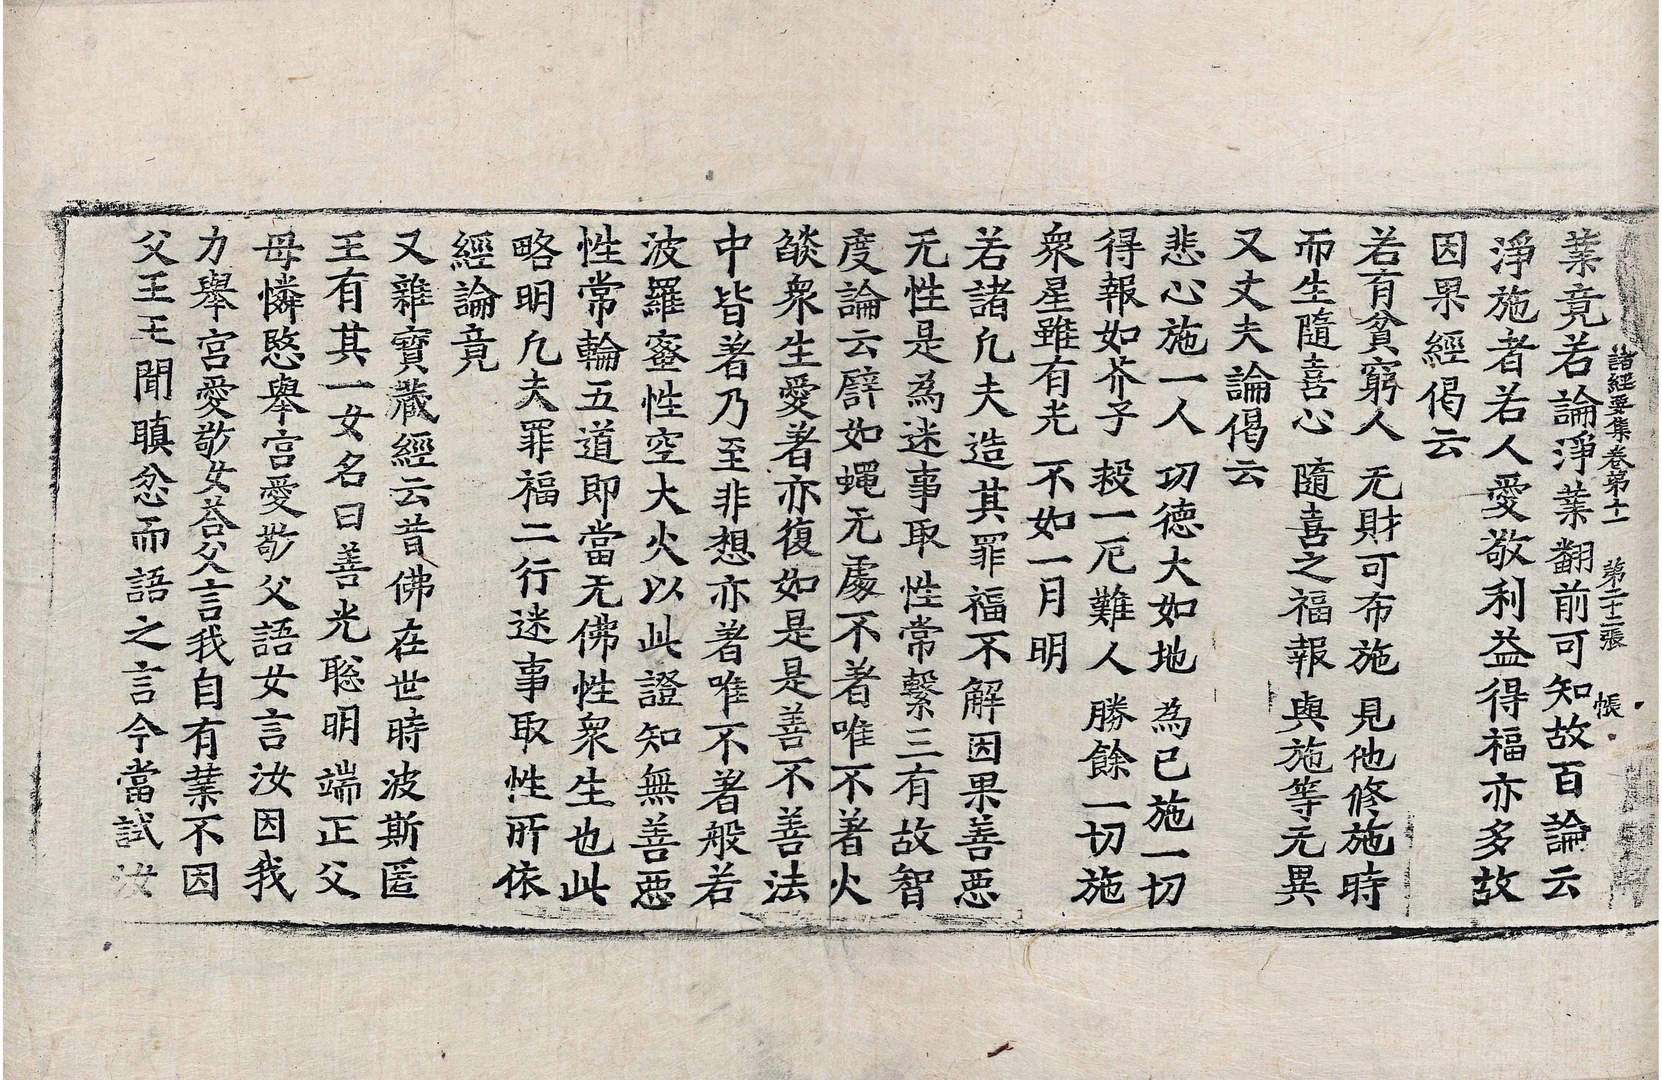 諸經要集卷第十一 第二十二張 悵
業竟若論淨業翻前可知故百論云
淨施者若人愛敬利益得福亦多故
因果經偈云
若有貧窮人 无財可布施 見他修施時
而生隨喜心 隨喜之福報 與施等无異
又丈夫論偈云
悲心施一人 功德大如地 為已施一切
得報如芥子 救一厄難人 勝餘一切施
衆星雖有光 不如一月明
若諸凡夫造其罪福不解因果善惡
无性是為迷事取性常繫三有故智
度論云譬如蠅无處不著唯不著火
燄衆生愛著亦復如是是善不善法
中皆著乃至非想亦著唯不著般若
波羅蜜性空大火以此證知無善惡
性常輪五道即當无佛性衆生也此
略明凡夫罪福二行迷事取性所依
經論竟
又雜寶藏經云昔佛在世時波斯匿
王有其一女名曰善光聡明端正父
母憐愍舉宮愛敬父語女言汝因我
力舉宮愛敬女荅父言我自有業不因
父王王聞瞋忿而語之言今當試汝